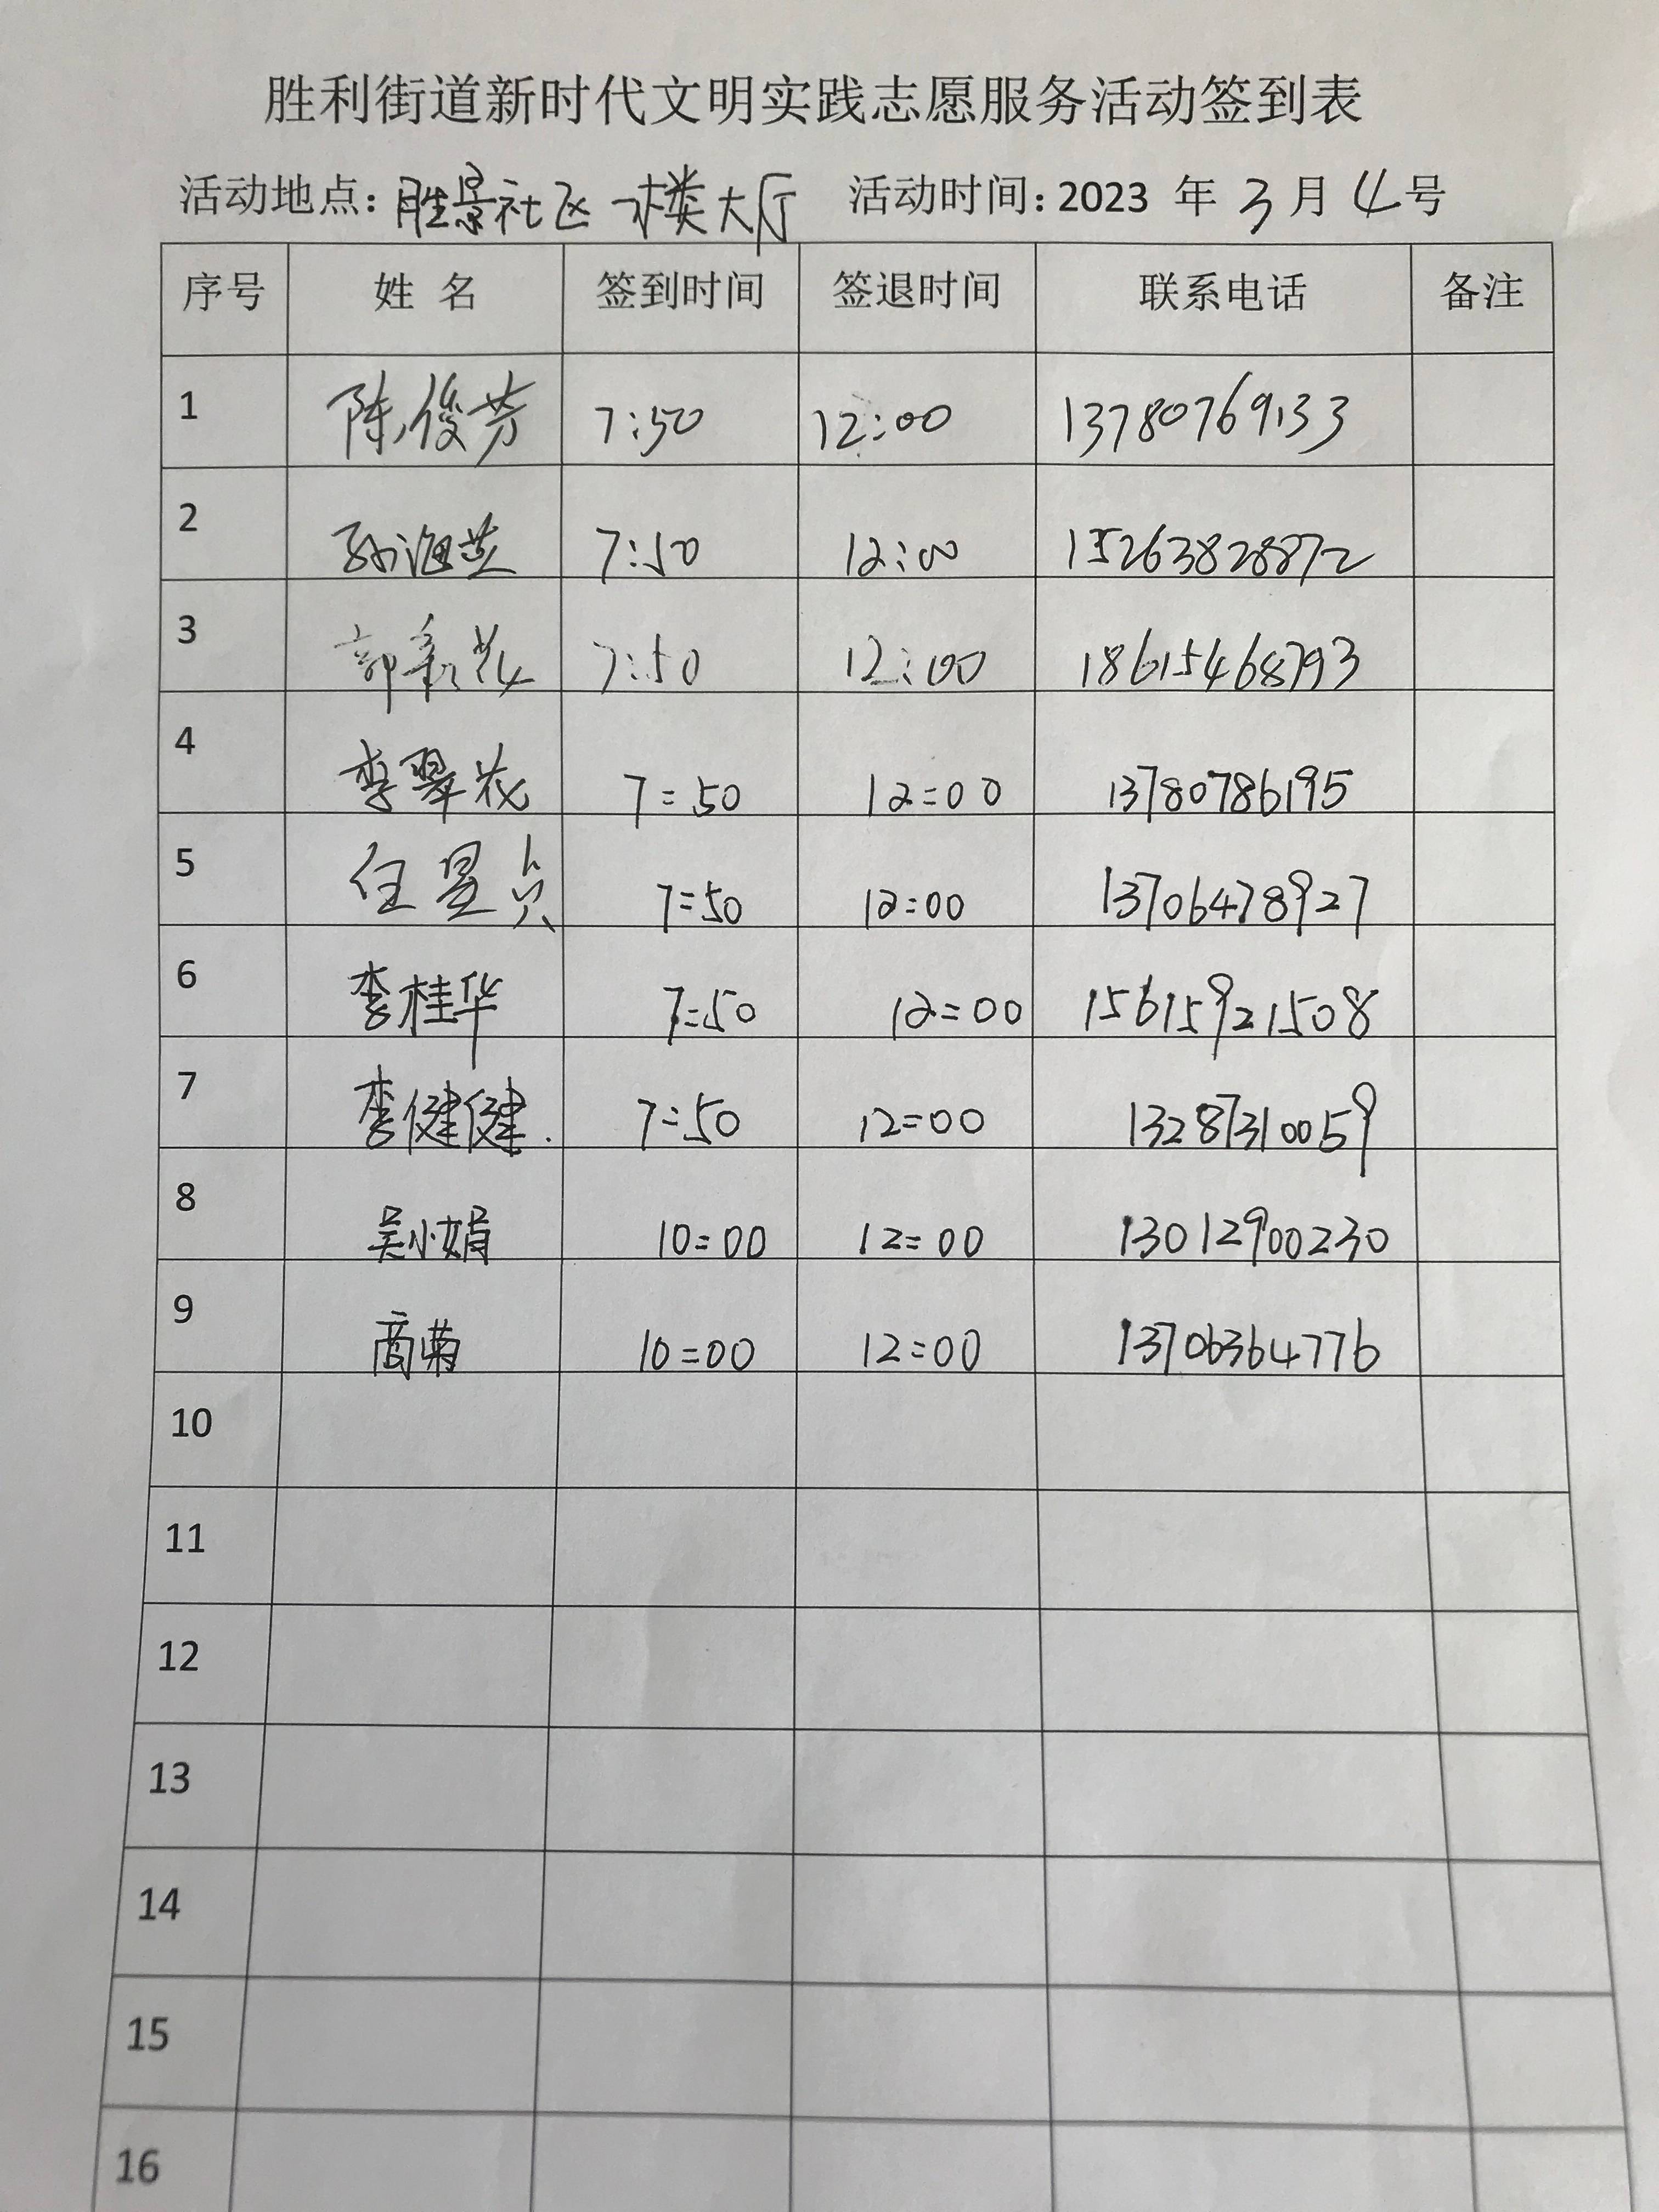 胜利街道新时代文明实践志愿服务活动签到表
活动地点：胜景社区一楼大厅 活动时间：2023 年 3 月 4 号
序号 姓 名 签到时间 签退时间 联系电话 备注
1 陈俊芳 7:50 12:00 13780769133
2 孙海英 7:50 12:00 15263828872
3 郭新花 7:50 12:00 18615468793
4 李翠花 7:50 12:00 13780786195
5 任昱贞 7:50 12:00 13706478927
6 李桂华 7:50 12:00 15615921508
7 李健健. 7:50 12:00 13287310059
8 吴小娟 10:00 12:00 13012900230
9 商菊 10:00 12:00 13706364776
10
11
12
13
14
15
16